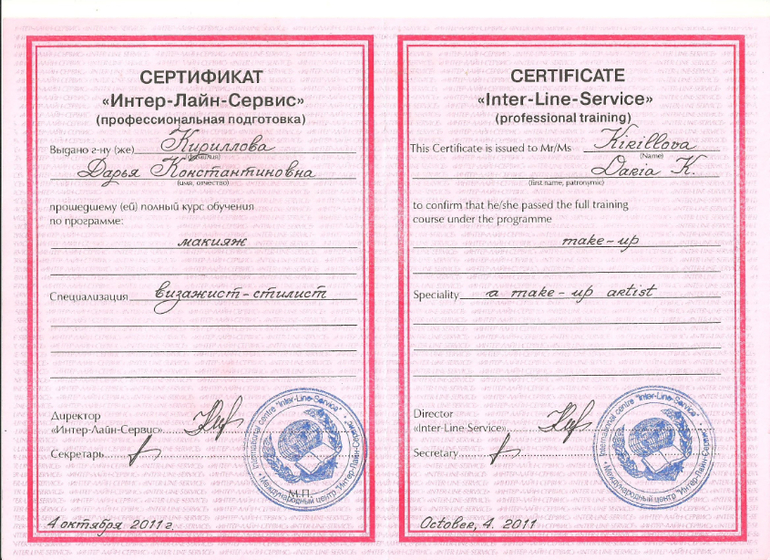 СЕРТИФИКАТ
«Интер-Лайн-Сервис»
(профессиональная подготовка)
Выдано г-ну (же) Кириллова
(фамилия)
Дарья Константиновна
(имя, отчество)
прошедшему (ей) полный курс обучения
по программе:
макияж
Специализация визажист-стилист
Директор
«Интер-Лайн-Сервис»
Секретарь
М.П.
International centre "Inter-Line-Service"
Международный центр "Интер-Лайн-Сервис"
4 октября 2011 г.
CERTIFICATE
«Inter-Line-Service»
(professional training)
This Certificate is issued to Mr/Ms Kirillova
(Name)
Daria K.
(first name, patronymic)
to confirm that he/she passed the full training
course under the programme
make-up
Speciality a make-up artist
Director
«Inter-Line-Service»
Secretary
International centre "Inter-Line-Service"
Международный центр "Интер-Лайн-Сервис"
October, 4. 2011